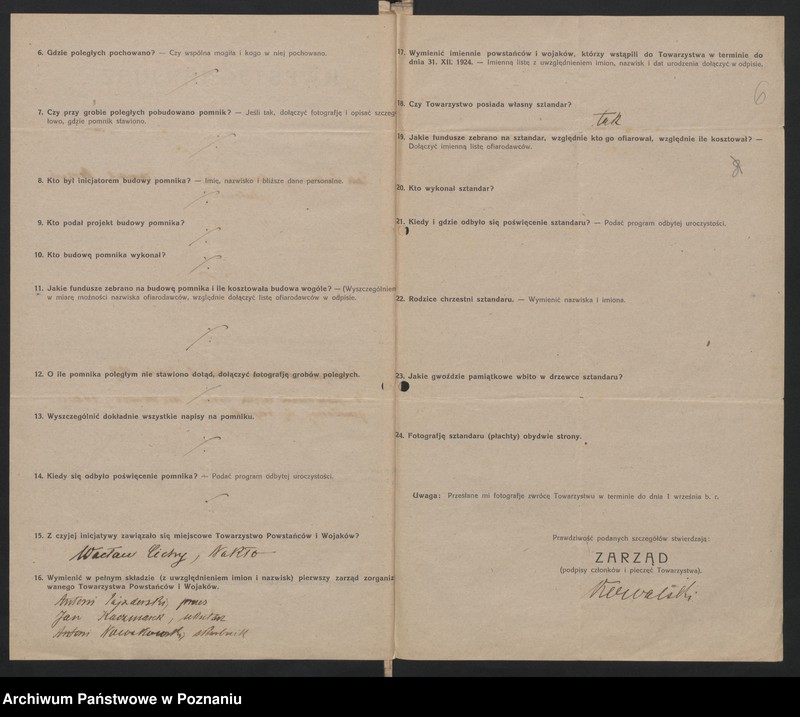 6. Gdzie poległych pochowano? — Czy wspólna mogiła i kogo w niej pochowano.
·/.
7. Czy przy grobie poległych pobudowano pomnik? — Jeśli tak, dołączyć fotografję i opisać szczegó
łowo, gdzie pomnik stawiono.
·/.
8. Kto był inicjatorem budowy pomnika? — Imię, nazwisko i bliższe dane personalne.
·/.
9. Kto podał projekt budowy pomnika?
·/.
10. Kto budowę pomnika wykonał?
·/.
11. Jakie fundusze zebrano na budowę pomnika i ile kosztowała budowa wogóle? — (Wyszczególnien
w miarę możności nazwiska ofiarodawców, względnie dołączyć listę ofiarodawców w odpisie.
·/.
12. O ile pomnika poległym nie stawiono dotąd, dołączyć fotografję grobów poległych.
·/.
13. Wyszczególnić dokładnie wszystkie napisy na pomniku.
·/.
14. Kiedy się odbyło poświęcenie pomnika? — Podać program odbytej uroczystości.
·/.
15. Z czyjej inicjatywy zawiązało się miejscowe Towarzystwo Powstańców i Wojaków?
Wacław Cichy, Nakło
16. Wymienić w pełnym składzie (z uwzględnieniem imion i nazwisk) pierwszy zarząd zorgani
wanego Towarzystwa Powstańców i Wojaków.
Antoni prezes
Jan Kaczmarek, sekretarz
Antoni Nowakowski, skarbnik
17. Wymienić imiennie powstańców i wojaków, którzy wstąpili do Towarzystwa w terminie do
dnia 31. XII. 1924. — Imienną listę z uwzględnieniem imion, nazwisk i dat urodzenia dołączyć w odpisie.
6
18. Czy Towarzystwo posiada własny sztandar?
tak
19. Jakie fundusze zebrano na sztandar, względnie kto go ofiarował, względnie ile kosztował? —
Dołączyć imienną listę ofiarodawców.
8
20. Kto wykonał sztandar?
21. Kiedy i gdzie odbyło się poświęcenie sztandaru? — Podać program odbytej uroczystości.
22. Rodzice chrzestni sztandaru. — Wymienić nazwiska i imiona.
23. Jakie gwoździe pamiątkowe wbito w drzewce sztandaru?
24. Fotografję sztandaru (płachty) obydwie strony.
Uwaga: Przesłane mi fotografje zwrócę Towarzystwu w terminie do dnia 1 września b. r.
Prawdziwość podanych szczegółów stwierdzają:
ZARZĄD
(podpisy członków i pieczęć Towarzystwa).
Kowalski
Archiwum Państwowe w Poznaniu